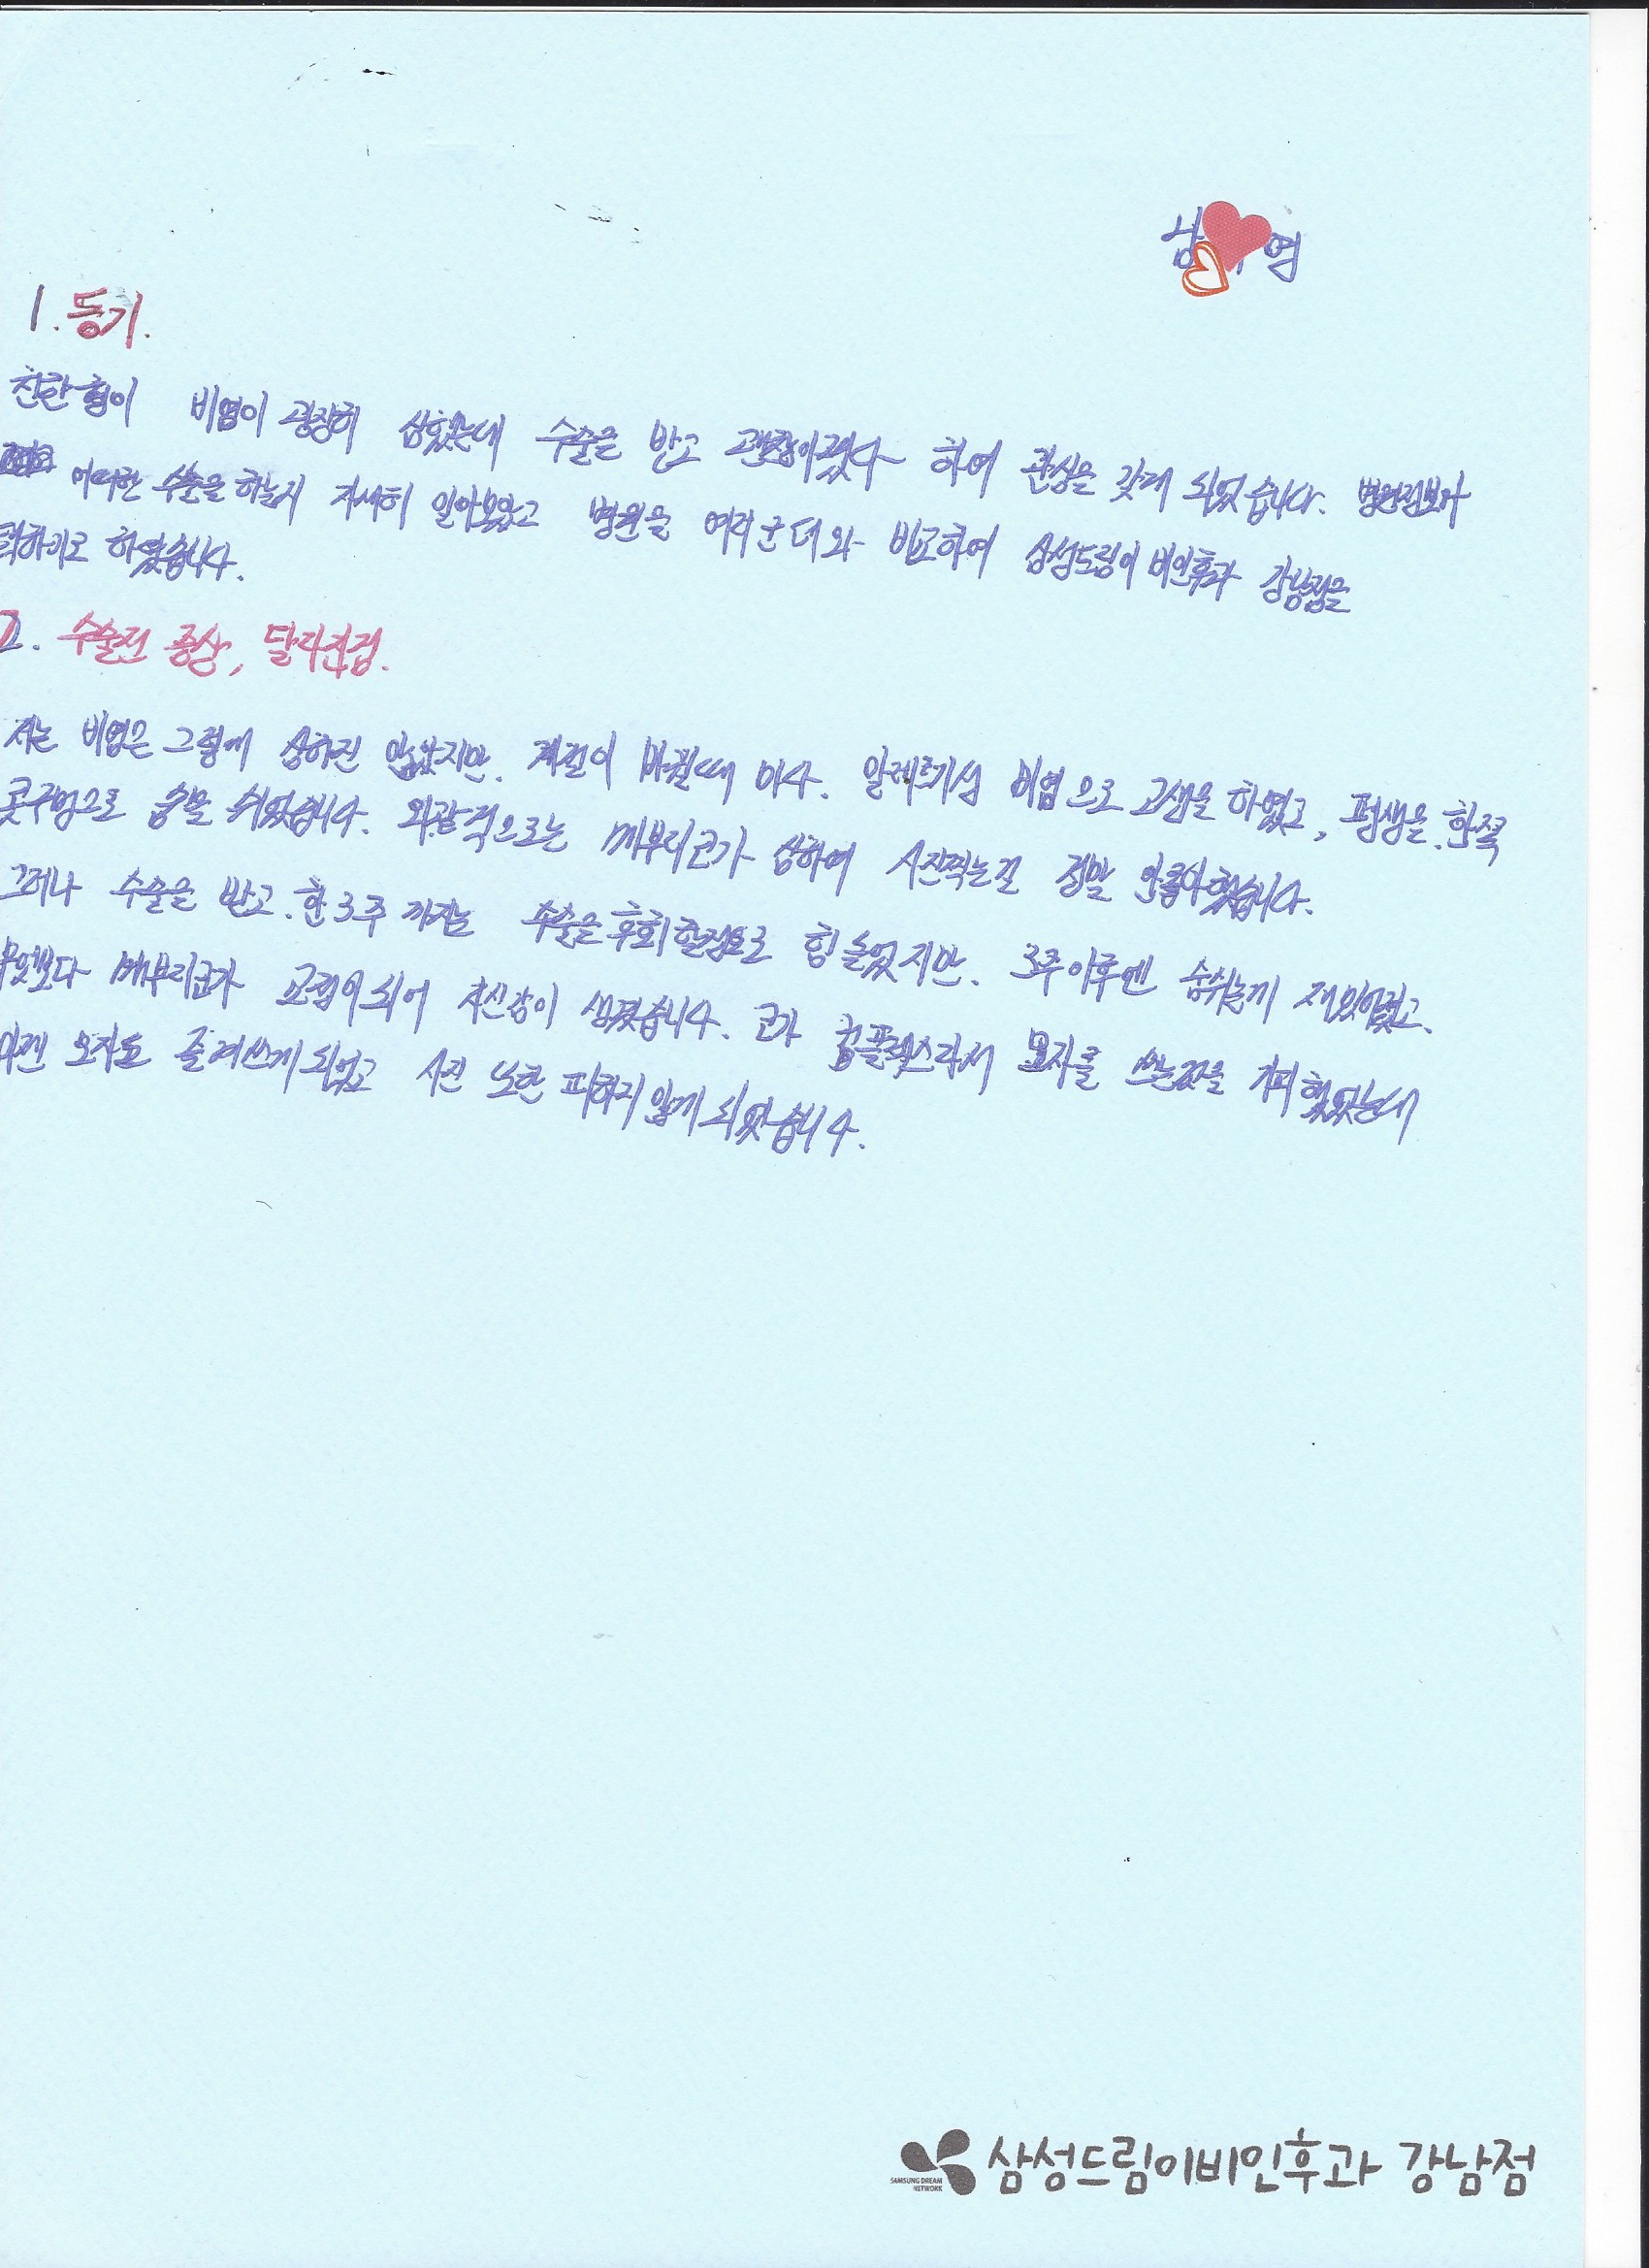 남 영
1. 동기.
친한 형이 비염이 굉장히 심했는데 수술을 받고 괜찮아졌다 하여 관심을 갖게 되었습니다. 병원정보와
어떠한 수술을 하는지 자세히 알아보았고 병원을 여러군데와 비교하여 삼성드림이비인후과 강남점을
택하기로 하였습니다.
2. 수술전 증상, 달라진점.
저는 비염은 그렇게 심하진 않았지만. 계절이 바뀔때 마다. 알레르기성 비염으로 고생을 하였고, 평생을 한쪽
콧구멍으로 숨을 쉬었습니다. 외관적으로는 매부리코가 심하여 사진찍는걸 정말 안좋아했습니다.
그러나 수술을 받고. 한 3주 까지는 수술을 후회할정도로 힘들었지만. 3주이후엔 숨쉬는게 재밌어졌고.
무엇보다 매부리코가 교정이되어 자신감이 생겼습니다. 코가 콤플렉스라서 모자를 쓰는것을 기피했었는데
이젠 모자도 즐겨쓰게되었고 사진 또한 피하지않게되었습니다.
SAMSUNG DREAM
NETWORK
삼성드림이비인후과 강남점